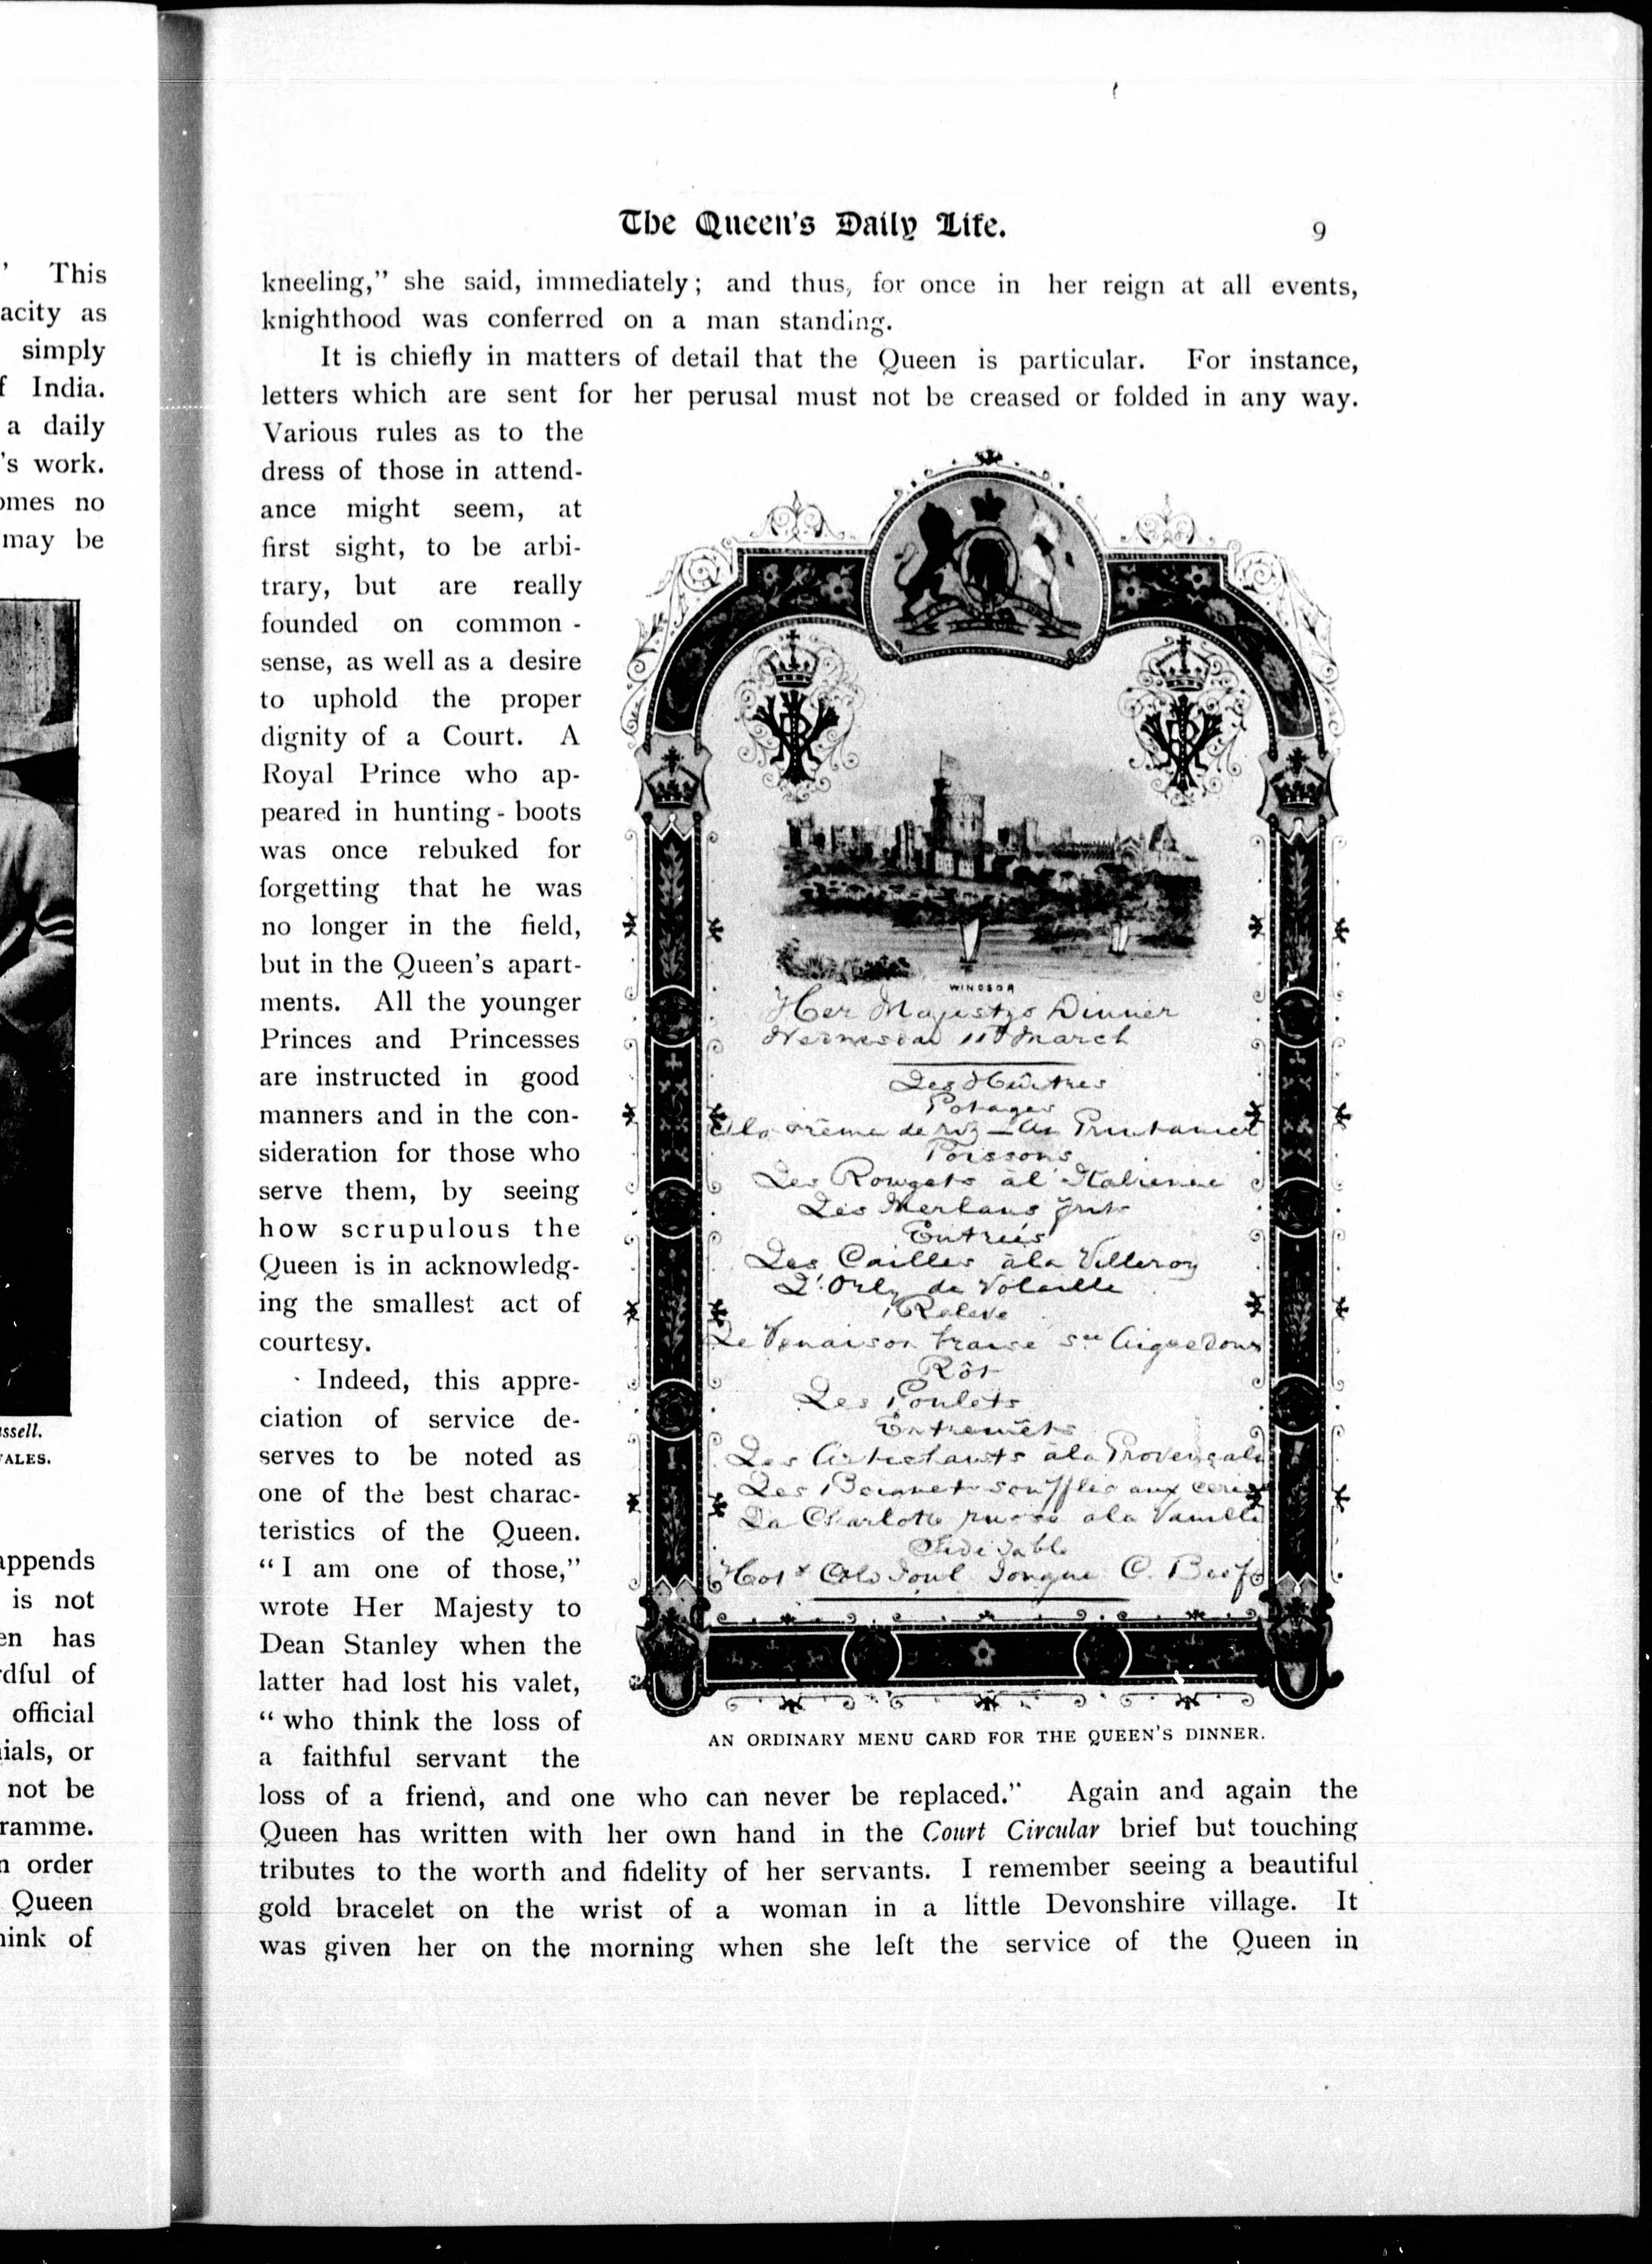 ' This
acity as
simply
f India.
a daily
's work.
omes no
may be
ssell.
ALES.
appends
is not
en has
dful of
official
ials, or
not be
ramme.
n order
Queen
ink of
The Queen's Daily Life.
9
kneeling," she said, immediately; and thus, for once in her reign at all events,
knighthood was conferred on a man standing.
It is chiefly in matters of detail that the Queen is particular. For instance,
letters which are sent for her perusal must not be creased or folded in any way.
Various rules as to the
dress of those in attend-
ance might seem, at
first sight, to be arbi-
trary, but are really
founded on common -
sense, as well as a desire
to uphold the proper
dignity of a Court. A
Royal Prince who ap-
peared in hunting - boots
was once rebuked for
forgetting that he was
no longer in the field,
but in the Queen's apart-
ments. All the younger
Princes and Princesses
are instructed in good
manners and in the con-
sideration for those who
serve them, by seeing
how scrupulous the
Queen is in acknowledg-
ing the smallest act of
courtesy.
Indeed, this appre-
ciation of service de-
serves to be noted as
one of the best charac-
teristics of the Queen.
"I am one of those,"
wrote Her Majesty to
Dean Stanley when the
latter had lost his valet,
"who think the loss of
a faithful servant the
loss of a friend, and one who can never be replaced." Again and again the
Queen has written with her own hand in the Court Circular brief but touching
tributes to the worth and fidelity of her servants. I remember seeing a beautiful
gold bracelet on the wrist of a woman in a little Devonshire village. It
was given her on the morning when she left the service of the Queen in
WINDSOR
Her Majestys Dinner
11th March
Les Huîtres
Potages
A la crême de riz — Au Printanier
Poissons
Les Rougets à l'Italienne
Les Merlans frits
Entrées
Les Cailles à la Villeroy
D'Orly de Volaille
Relevé
Venaison braise sce Aigredoux
Rôt
Les Poulets
Entremêts
Les Artichauts à la Provençale
Les Beignets soufflés aux
La Charlotte russe a la Vanille
Side Table
Hot & Cold Fowl Tongue C. Beef
AN ORDINARY MENU CARD FOR THE QUEEN'S DINNER.